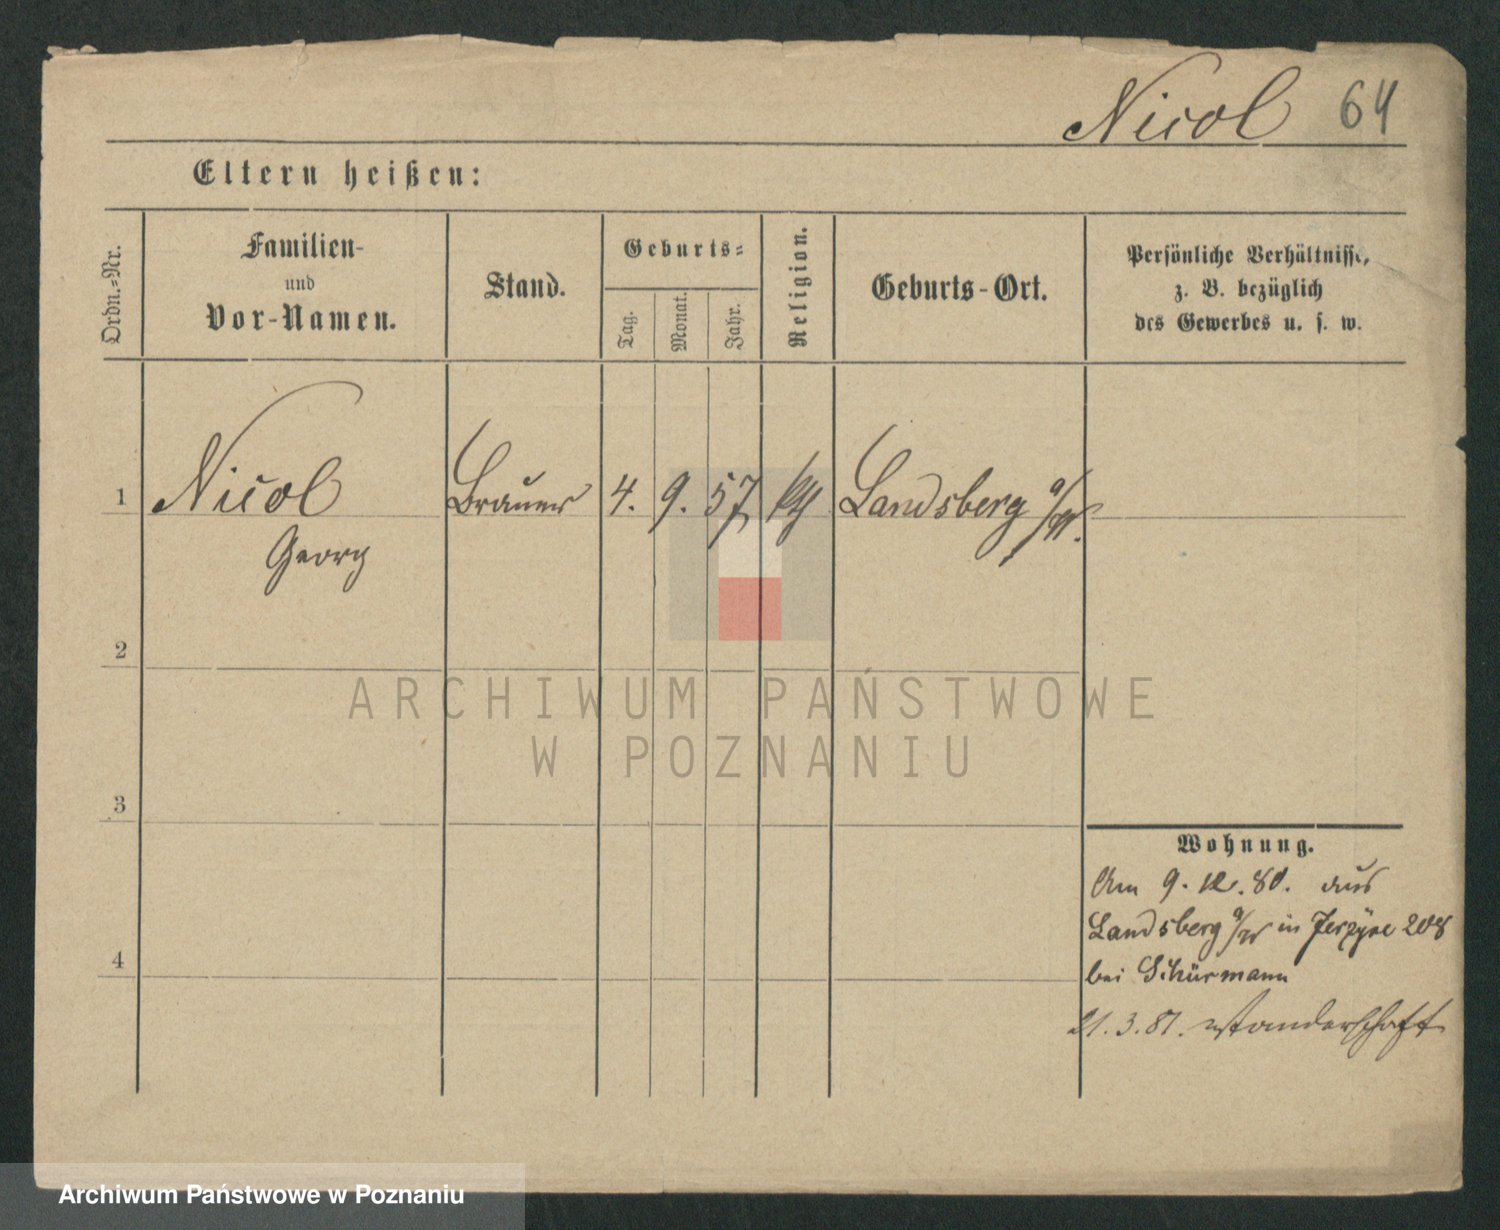 Nicol 64
Eltern heißen:
Ordn.-Nr.
Familien-
und
Vor-Namen.
Stand.
Geburts-
Tag.
Monat.
Jahr.
Religion.
Geburts-Ort.
Persönliche Verhältnisse,
z. B. bezüglich
des Gewerbes u. s. w.
1 Nicol Brauer 4. 9. 57 Landsberg a/W.
Georg
2
3
4
Wohnung.
Am 9. 12. 80. aus
Landsberg a/W in 208
bei Schürmann
21. 3. 81. Wanderschaft
ARCHIWUM PAŃSTWOWE
W POZNANIU
Archiwum Państwowe w Poznaniu